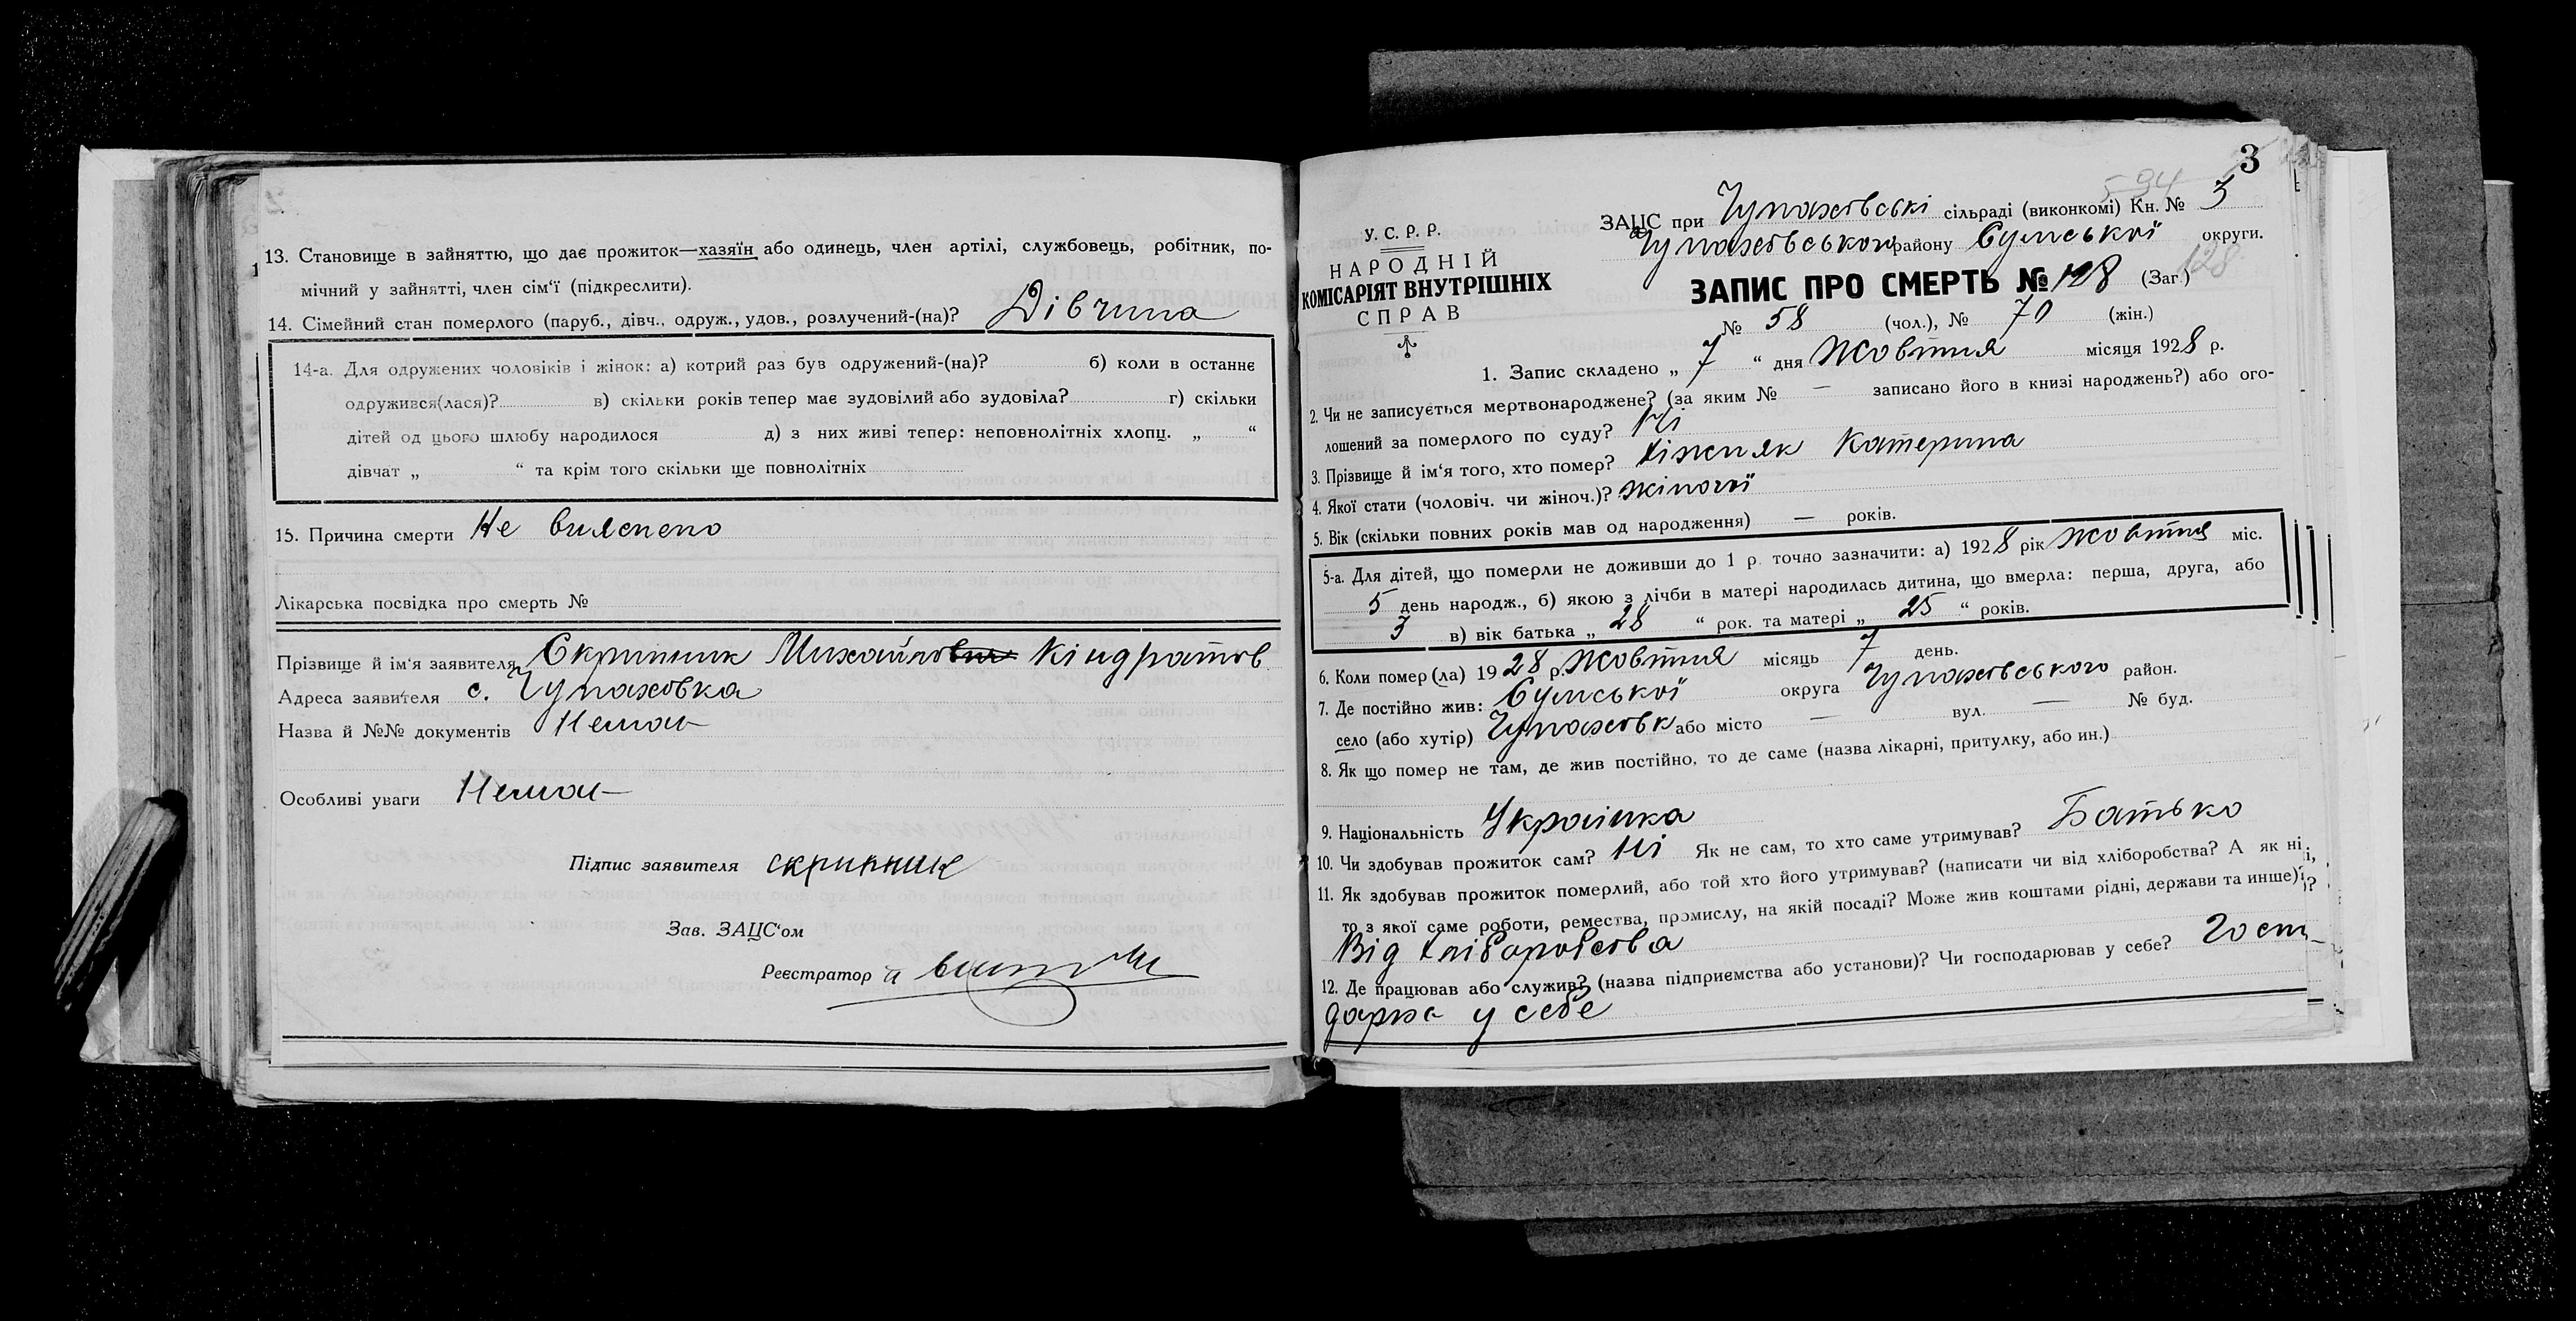 13. Становище в зайняттю, що дає прожиток—хазяїн або одинець, член артілі, службовець, робітник, по-
мічний у зайнятті, член сім‘ї (підкреслити).
14. Сімейний стан померлого (паруб., дівч., одруж., удов., розлучений-(на)? Дівчина
14-а. Для одружених чоловіків і жінок: а) котрий раз був одружений-(на)? б) коли в останнє
одружився(лася)? в) скільки років тепер має зудовілий або зудовіла? г) скільки
дітей од цього шлюбу народилося д) з них живі тепер: неповнолітніх хлопц. „ “
дівчат „ “ та крім того скільки ще повнолітніх
15. Причина смерти Не вияснено
Лікарська посвідка про смерть №
Прізвище й ім‘я заявителя Скрипник Михайло Кіндратов
Адреса заявителя с. Чупаховка
Назва й №№ документів Немає
Особливі уваги Немає
Підпис заявителя скрипник
Зав. ЗАЦС‘ом
Реєстратор
3
594
У. С. Р. Р.
НАРОДНІЙ
КОМІСАРІЯТ ВНУТРІШНІХ
СПРАВ
ЗАЦС при Чупахівські сільраді (виконкомі) Кн. № 3
Чупахівського району Сумської округи.
ЗАПИС ПРО СМЕРТЬ № 128 (Заг.) 128
№ 58 (чол.), № 70 (жін.)
1. Запис складено „ 7 “ дня Жовтня місяця 1928 р.
2. Чи не записується мертвонароджене? (за яким № — записано його в книзі народжень?) або ого-
лошений за померлого по суду? Ні
3. Прізвище й ім‘я того, хто помер? Хіжняк Катерина
4. Якої стати (чоловіч. чи жіноч.)? жіночої
5. Вік (скільки повних років мав од народження) — років.
5-а. Для дітей, що померли не доживши до 1 р. точно зазначити: а) 1928 рік Жовтня міс.
5 день народж., б) якою з лічби в матері народилась дитина, що вмерла: перша, друга, або
3 в) вік батька „ 28 “ рок. та матері „ 25 “ років.
6. Коли помер(ла) 1928 р. Жовтня місяць 7 день.
7. Де постійно жив: Сумської округа Чупахівського район.
село (або хутір) Чупахівк або місто — вул. — № буд.
8. Як що помер не там, де жив постійно, то де саме (назва лікарні, притулку, або ин.)
9. Національність Українка
10. Чи здобував прожиток сам? Ні Як не сам, то хто саме утримував? Батько
11. Як здобував прожиток померлий, або той хто його утримував? (написати чи від хліборобства? А як ні,
то з якої саме роботи, ремества, промислу, на якій посаді? Може жив коштами рідні, держави та инше)?
Від хліборобства
12. Де працював або служив? (назва підприємства або установи)? Чи господарював у себе? Госпо-
дарка у себе